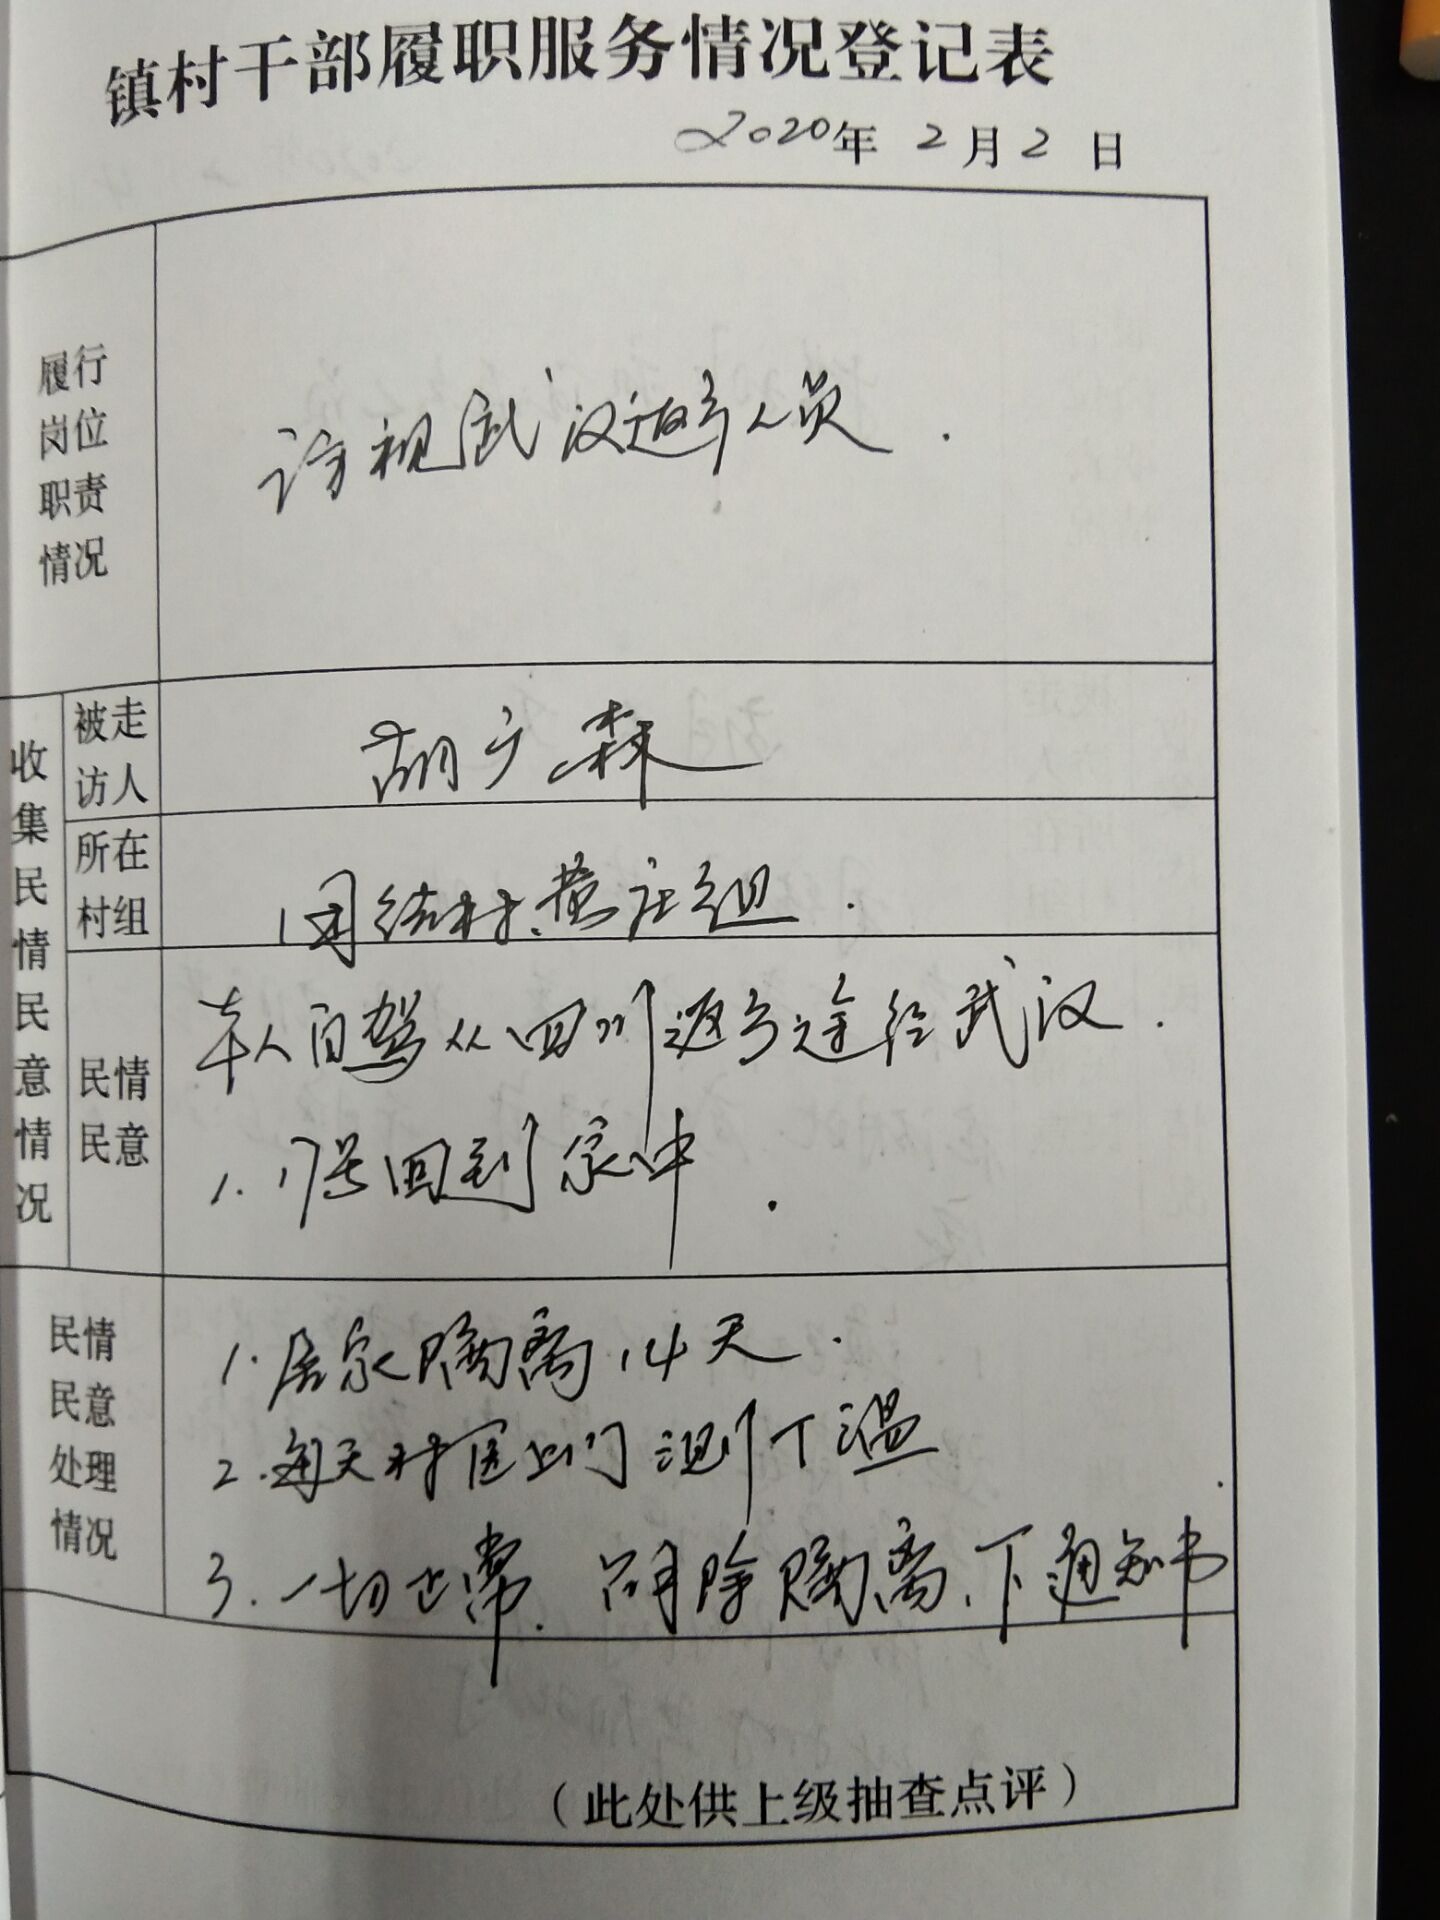 镇村干部履职服务情况登记表
2020年2月2日
履行
岗位
职责
情况
访视武汉返乡人员.
收集民情民意情况
被走
访人
胡广森
所在
村组
团结村黄庄组.
民情
民意
本人自驾从四川返乡途经武汉.
1.17号回到家中.
民情
民意
处理
情况
1.居家隔离14天.
2.每天村医上门测下温
3.一切正常.解除隔离、下通知书
（此处供上级抽查点评）